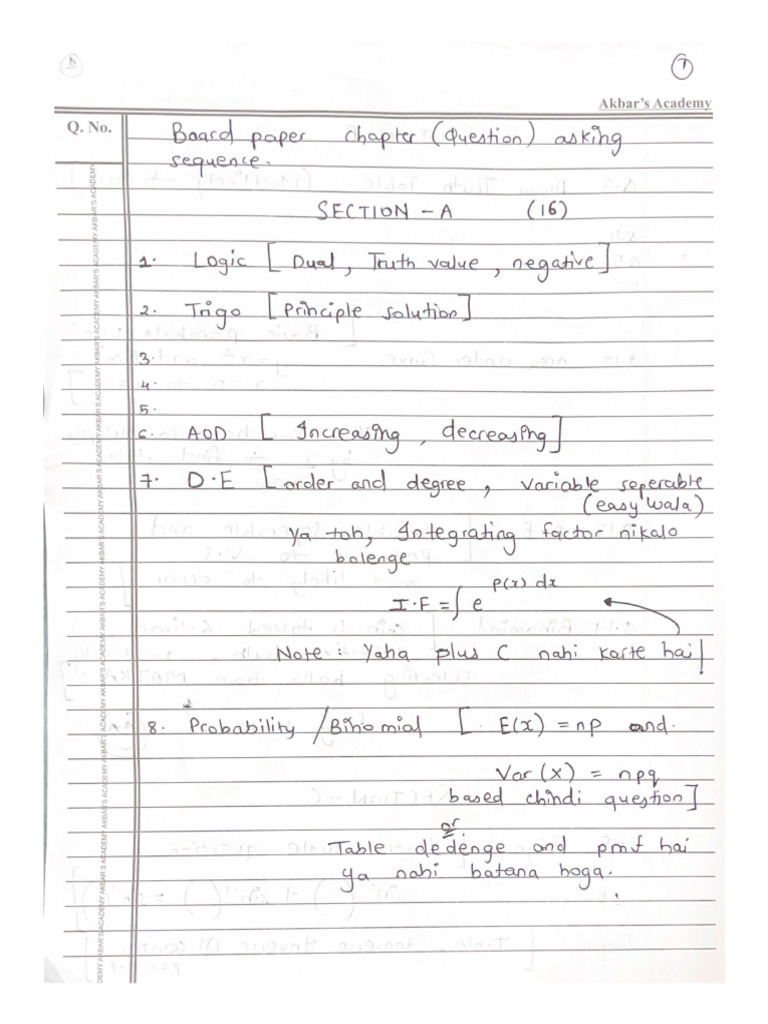 1
Akbar's Academy
Q. No.
Board paper chapter (Question) asking
sequence.
SECTION - A (16)
1. Logic [ Dual, Truth value, negative]
2. Trigo [Principle solution]
3.
4.
5.
6. AOD [ Increasing, decreasing]
7. D.E [order and degree, variable seperable
(easy wala)
ya toh, Integrating factor nikalo
bolenge
I.F = ∫ e p(x) dx
Note : Yaha plus C nahi karte hai!
8. Probability /Binomial [. E(x) = np and.
Var (x) = npq
based chindi question]
or
Table dedenge and pmf hai
ya nahi batana hoga.
AKBAR'S ACADEMY AKBAR'S ACADEMY AKBAR'S ACADEMY AKBAR'S ACADEMY AKBAR'S ACADEMY